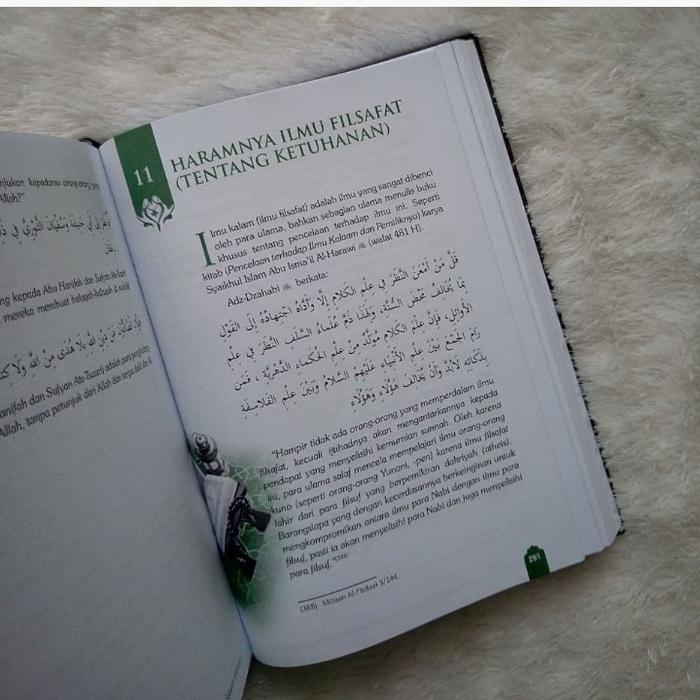 njukan kepadanya orang-orang yang
Allah?"
ng kepada Abu Hanifah dan Sufyan
mereka membuat halaqah-halaqah di
anifah dan Sufyan Ats-Tsauri) adalah para
Allah, tanpa petunjuk dari Allah dan
11
HARAMNYA ILMU FILSAFAT
(TENTANG KETUHANAN)
Ilmu kalam (ilmu filsafat) adalah ilmu yang sangat dibenci
oleh para ulama, bahkan sebagian ulama menulis buku
khusus tentang pencelaan terhadap ilmu ini. Seperti
kitab (Pencelaan terhadap Ilmu Kalaam dan Pemiliknya) karya
Syaikhul Islam Abu Isma'il Al-Harawi (wafat 481 H).
Adz-Dzahabi berkata:
قَلَّ مَنْ أَمْعَنَ النَّظَرَ فِي عِلْمِ الْكَلَامِ إِلَّا وَأَدَّاهُ اجْتِهَادُهُ إِلَى الْقَوْلِ
بِمَا يُخَالِفُ مَحْضَ السُّنَّةِ، وَلِهَذَا ذَمَّ عُلَمَاءُ السَّلَفِ النَّظَرَ فِي عِلْمِ
الْأَوَائِلِ، فَإِنَّ عِلْمَ الْكَلَامِ مُوَلَّدٌ مِنْ عِلْمِ الْحُكَمَاءِ الدَّهْرِيَّةِ، فَمَنْ
رَامَ الْجَمْعَ بَيْنَ عِلْمِ الْأَنْبِيَاءِ عَلَيْهِمُ السَّلَامُ وَبَيْنَ عِلْمِ الْفَلَاسِفَةِ
بِذَكَائِهِ لَابُدَّ وَأَنْ يُخَالِفَ هَؤُلَاءِ وَهَؤُلَاءِ
"Hampir tidak ada orang-orang yang memperdalam ilmu
filsafat, kecuali ijtihadnya akan mengantarkannya kepada
pendapat yang menyelisihi kemurnian sunnah. Oleh karena
itu, para ulama salaf mencela mempelajari ilmu orang-orang
kuno (seperti orang-orang Yunani, -pen) karena ilmu filsafat
lahir dari para filsuf yang berpemikiran dahriyah (atheis).
Barangsiapa yang dengan kecerdasannya berkeinginan untuk
mengkompromikan antara ilmu para Nabi dengan ilmu para
filsuf, pasti ia akan menyelisihi para Nabi dan juga menyelisihi
para filsuf."
(388) Mizaan Al-I'tidaal 3/144.
291